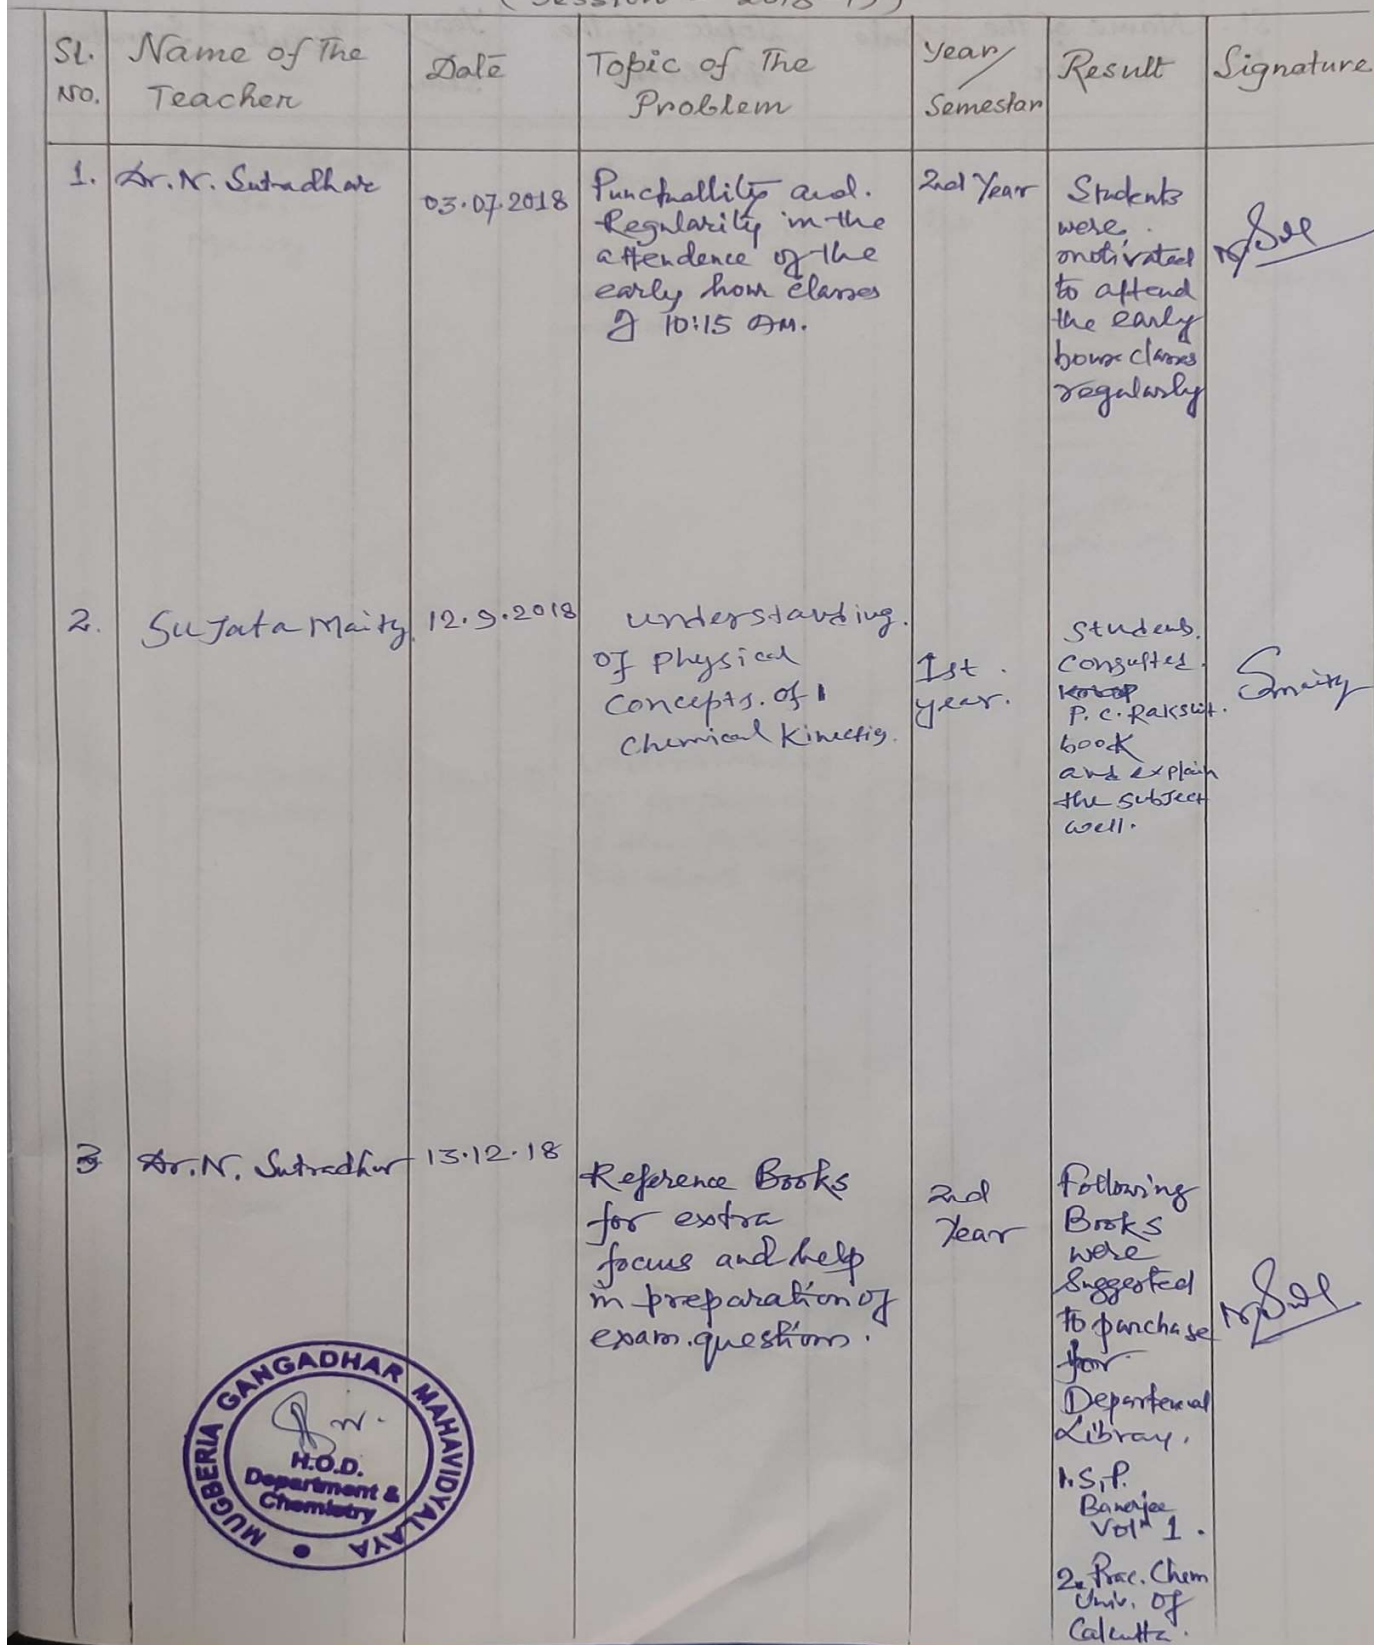 (Session - 2018-19)
Sl. No.
Name of The Teacher
Date
Topic of The Problem
Year/ Semestar
Result
Signature
1.
Dr. N. Sutradhar
03.07.2018
Punctuallity and.
Regularity in the
attendence of the
early hour classes
10:15 AM.
2nd Year
Students
were
motivated
to attend
the early
hour classes
regularly
2.
Sujata Maity
12.9.2018
understanding.
of physical
concepts. of
chemical kinectis.
1st
year.
Students.
consulted.
P.C. Rakshit.
book
and explain
the subject
well.
Smaity
3
Dr. N. Sutradhar
13.12.18
Reference Books
for extra
focus and help
in preparation of
exam. questions.
2nd
Year
Following
Books
were
Suggested
to purchase
for
Departemal
Library.
1. S.P.
Banerjee
Voln 1.
2. Prac. Chem
Univ. of
Calcutta.
MUGBERIA GANGADHAR MAHAVIDYALAYA
H.O.D.
Department &
Chemistry